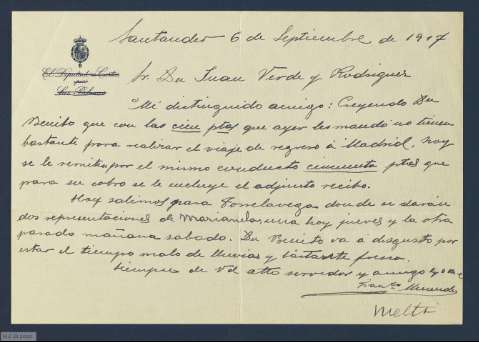 Santander 6 de Septiembre de 1917
El Diputado a Cortes
por
Las Palmas
Sr. Dn Juan Verde y Rodriguez
"Mi distinguido amigo: Creyendo Dn
Benito que con las cien ptas que ayer les mandó no tienen
bastante para realizar el viaje de regreso á Madrid, hoy
se le remite por el mismo conducto cincuenta ptas que
para su cobro se le incluye el adjunto recibo.
Hoy salimos para Torrelavega donde se darán
dos representaciones de Marianela, una hoy jueves y la otra
pasado mañana sabado. Dn Benito va a disgusto por
estar el tiempo malo de lluvias y bastante fresco.
Siempre de Vd atto servidor y amigo